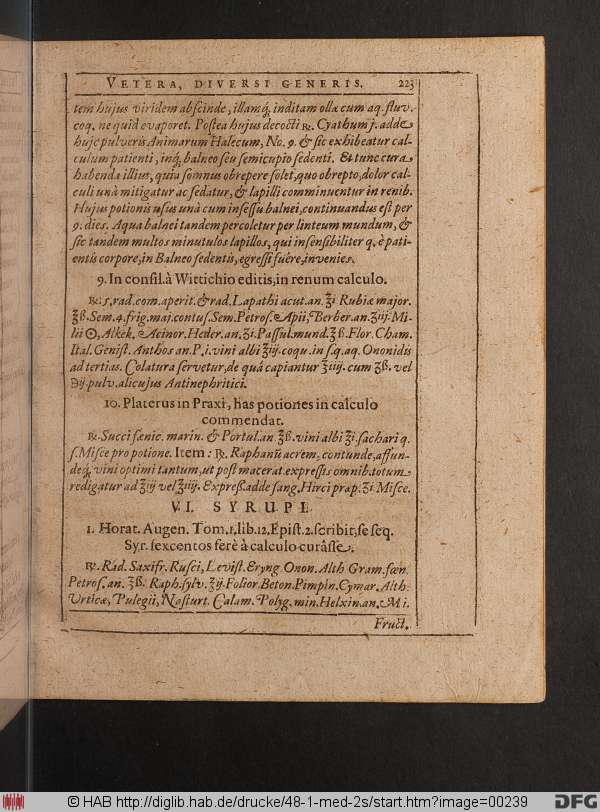 VETERA, DIVERSI GENERIS. 223
tem hujus viridem abscinde, illamq́, inditam ollæ cum aq. fluv.
coq. ne quid evaporet. Postea hujus decocti ℞. Cyathum j. adde
huic pulveris Animarum Halecum, No. 9. & sic exhibeatur cal-
culum patienti, inq́, balneo seu semicupio sedenti. Et tunc cura
habenda illius, quia somnus obrepere solet, quo obrepto, dolor cal-
culi unà mitigatur ac sedatur, & lapilli comminuentur in renib.
Hujus potionis usus unà cum insessu balnei, continuandus est per
9. dies. Aqua balnei tandem percoletur per linteum mundum, &
sic tandem multos minutulos lapillos, qui insensibiliter q. è pati-
entis corpore, in Balneo sedentis, egressi fuêre, invenies.
9. In consil. à Wittichio editis, in renum calculo.
℞. 5. rad. com. aperit. & rad. Lapathi acut. an. ℥i Rubiæ major.
℥ß. Sem. 4. frig. maj. contus. Sem. Petros. Apii, Berber. an. ʒiij. Mi-
lii ☉, Alkek. Acinor. Heder. an. ʒi. Passul. mund. ℥ß. Flor. Cham.
Ital. Genist. Anthos an. P. i. vini albi ℥iij. coqu. in s. q. aq. Ononidis
ad tertias. Colatura servetur, de quâ capiantur ℥iiij. cum ʒß. vel
℈ij. pulv. alicujus Antinephritici.
10. Platerus in Praxi, has potiones in calculo
commendat.
℞. Succi fœnic. marin. & Portul. an ℥ß. vini albi ℥i. sachari q.
s. Misce pro potione. Item: ℞. Raphanũ acrem, contunde, affun-
de q́, vini optimi tantum, ut post macerat. expressis omnib. totum
redigatur ad ℥iij vel ℥iiij. Express. adde sang. Hirci præp. ʒi. Misce.
VI. SYRUPI.
1. Horat. Augen. Tom. 1. lib. 12. Epist. 2. scribit, se seq.
Syr. sexcentos ferè à calculo curâsse.
℞. Rad. Saxifr. Rusci, Levist. Eryng Onon. Alth Gram. fœn.
Petros. an. ℥ß. Raph. sylv. ℥ij. Folior. Beton. Pimpin. Cymar. Alth.
Urticæ, Pulegii, Nasturt. Calam. Polyg. min. Helxin. an. M i.
Fruct.
© HAB http://diglib.hab.de/drucke/48-1-med-2s/start.htm?image=00239
DFG